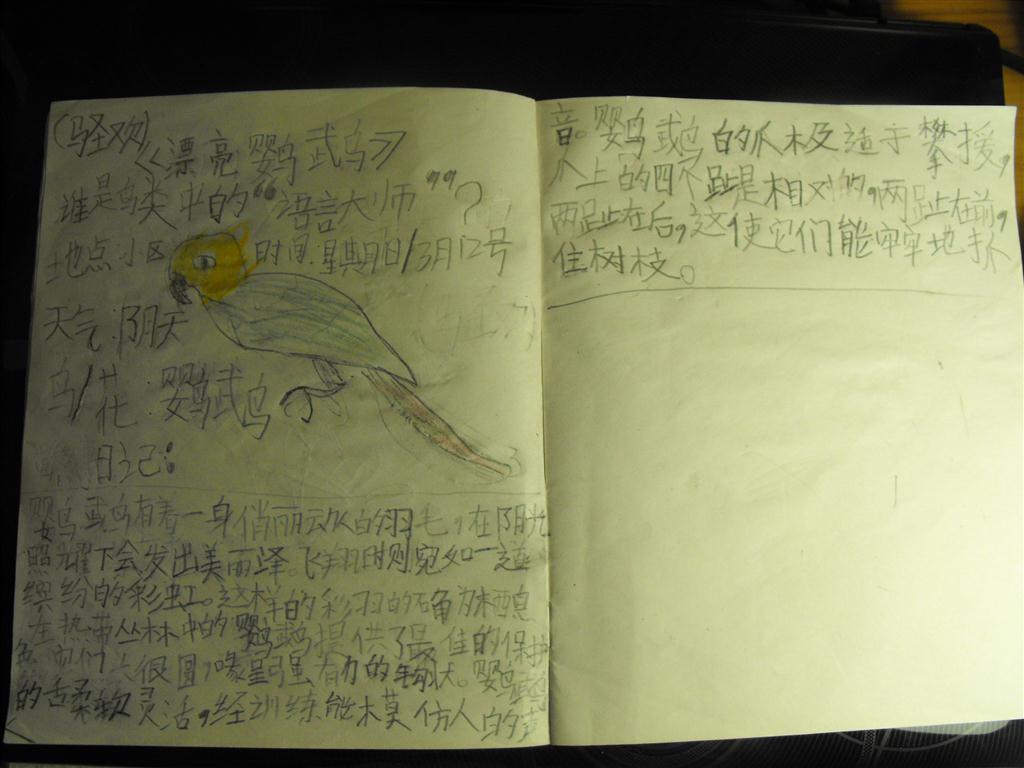 (驿欢)
《漂亮鹦武鸟》
谁是鸟类中的“语言大师”?
地点:小区 时间:星期日/3月12号
天气:阴天
鸟/花 鹦武鸟
日记:
鹦鸟或鸟有着一身俏丽动人的羽毛,在阳光
照耀下会发出美丽泽。飞翔时则宛如一道
缤纷的彩虹。这样的彩羽的确为栖息
在热带丛林中的鹦鹉提供了最佳的保护
色 它们 很圆,喙呈强有力的钩状。鹦鹉
的舌柔软灵活,经训练能模仿人的声
音。鹦鸟或鸟的爪极适于攀援,
爪上的四个趾是相对的,两趾在前,
两趾在后,这使它们能牢牢地抓
住树枝。